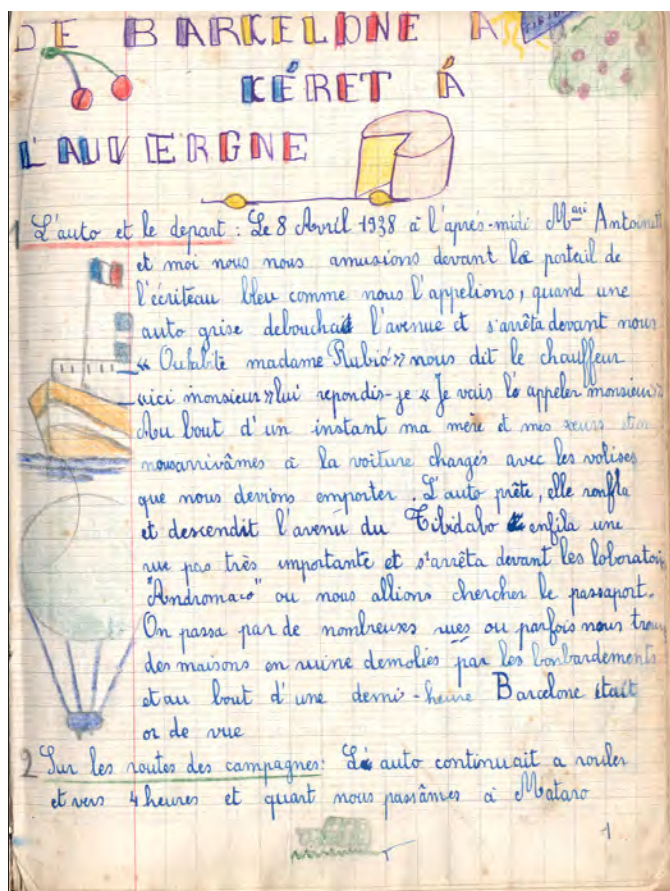 DE BARCELONE A
CÉRET À
L'AUVERGNE
1 L'auto et le depart : Le 8 Avril 1938 à l'après-midi Mari Antoinett
et moi nous nous amusions devant le portail de
l'écriteau bleu comme nous l'appelions, quand une
auto grise debouchait l'avenue et s'arrêta devant nous
« Ouhabite madame Rubió» nous dit le chauffeur
«ici monsieur» lui repondis-je « Je vais l'appeler monsieur»
Au bout d'un instant ma mère et mes sœurs
nousarrivâmes à la voiture chargés avec les valises
que nous devions emporter. L'auto prête, elle ronfla
et descendit l'avenu du Tibidabo enfila une
rue pas très importante et s'arrêta devant les laboratoir
"Andromaco" ou nous allions chercher le passaport.
On passa par de nombreuses rues ou parfois nous trouv
des maisons en ruine demolies par les bonbardements
etau bout d'une demi-heure Barcelone était
or de vue
2 Sur les routes des campagnes: L'auto continuait a rouler
et vers 4 heures et quart nous passâmes à Mataro
1